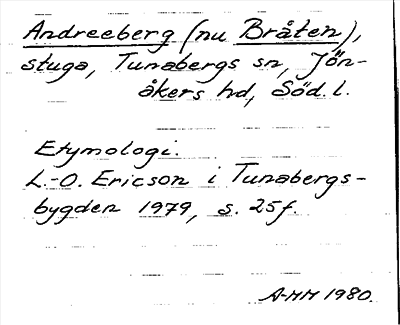 Andreeberg (nu Bråten),
stuga, Tunabergs sn, Jön-
åkers hd, Söd. l.
Etymologi.
L.-O. Ericson i Tunabergs-
bygden 1979, s. 25f.
A-MM 1980.